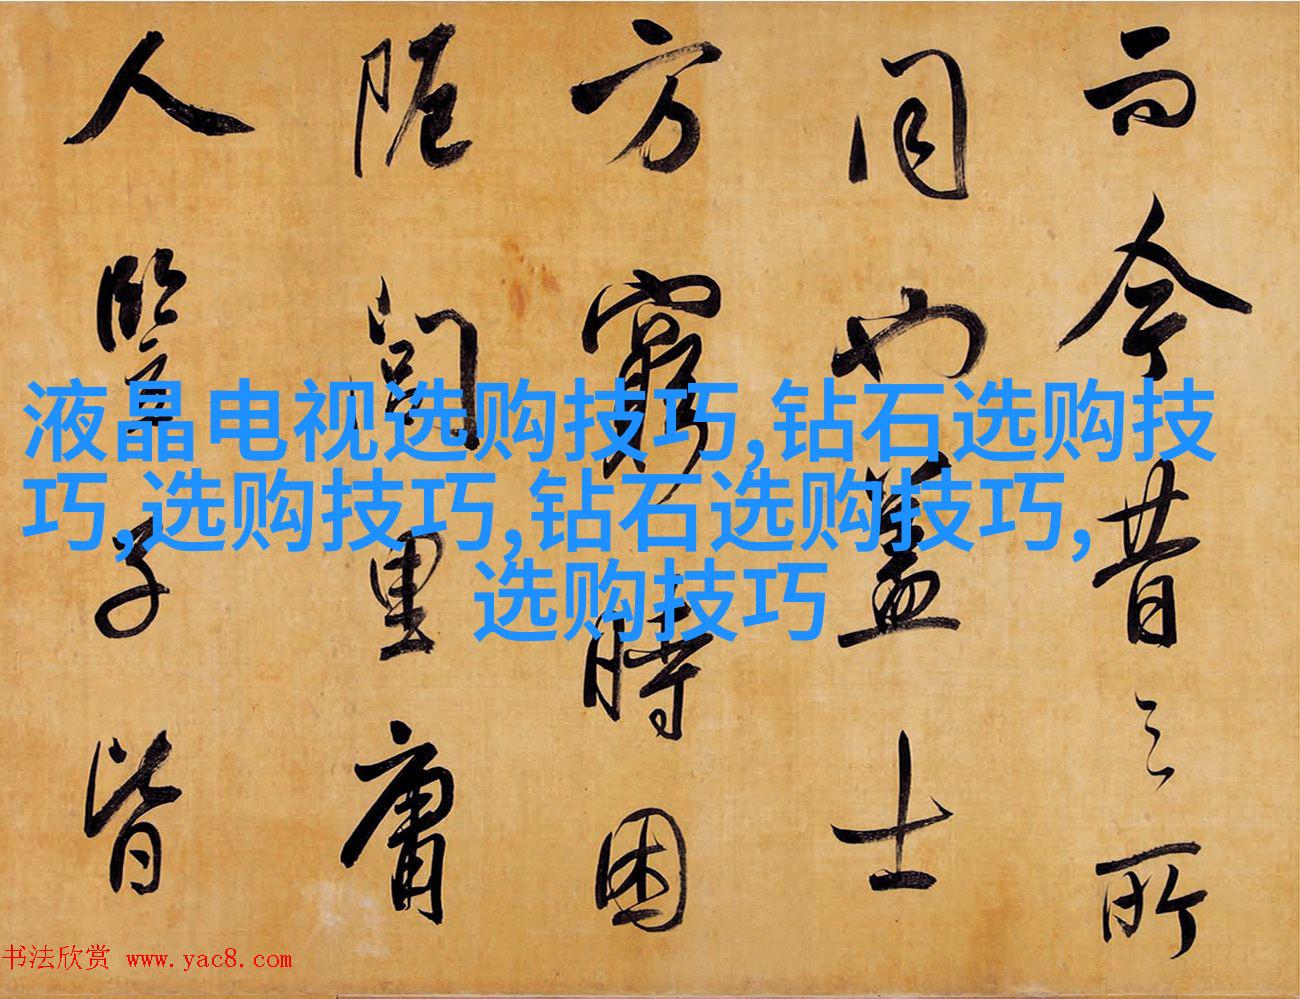 而今昔之所
同也盖士
方窮時困
阨閭里庸
人竪子皆
液晶电视选购技巧,钻石选购技
巧,选购技巧,钻石选购技巧,
选购技巧
书法欣赏 www.yac8.com